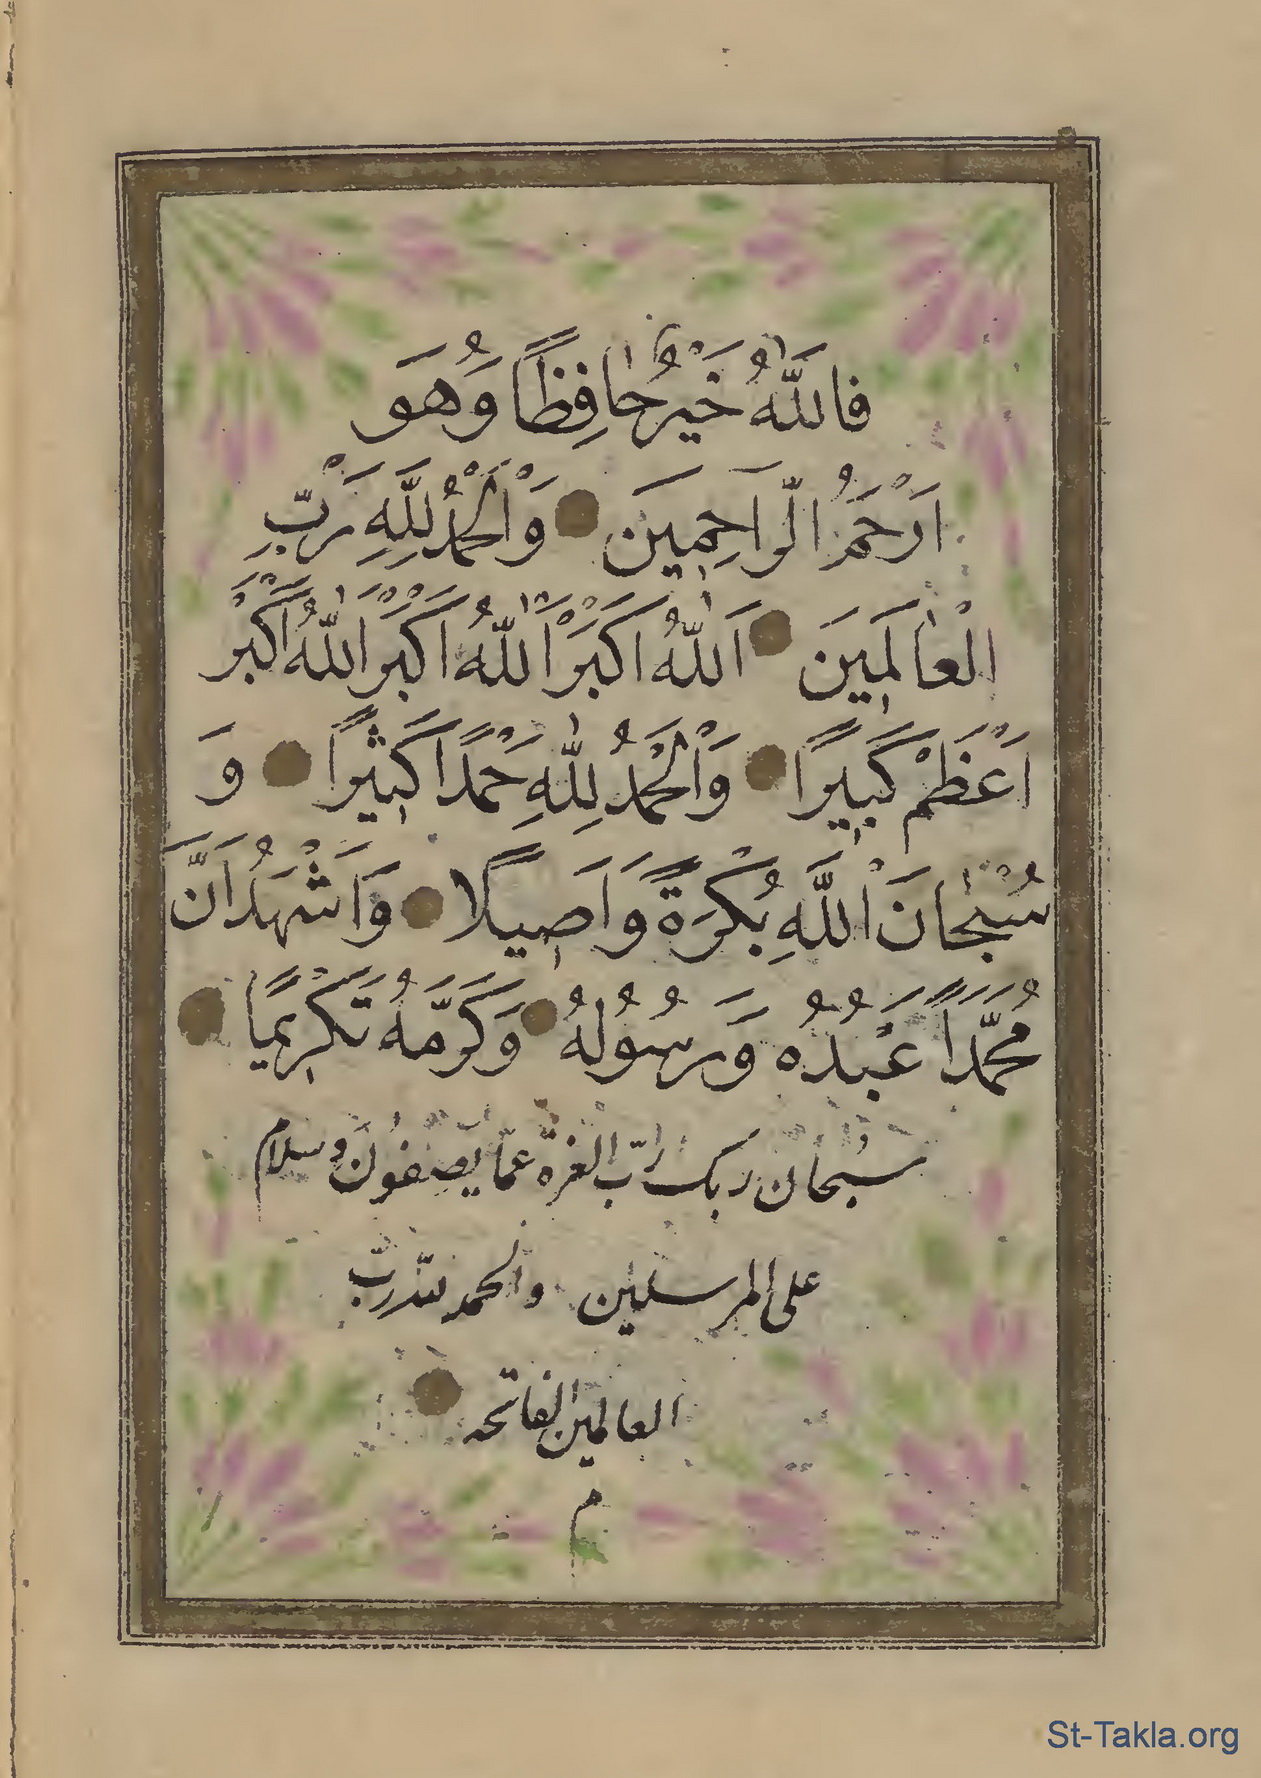 فَاللّٰهُ خَيْرٌ حٰافِظًا وَهُوَ
اَرْحَمُ الرَّاحِمِينَ وَالْحَمْدُ لِلَّهِ رَبِّ
الْعٰالَمِينَ اَللّٰهُ اَكْبَرْ اَللّٰهُ اَكْبَرْ اَللّٰهُ اَكْبَرْ
اَعْظَمْ كَبِيرًا وَالْحَمْدُ لِلّٰهِ حَمْدًا كَثِيرًا وَ
سُبْحٰانَ اللَّهِ بُكْرَةً وَاَصِيلًا وَاَشْهَدُ اَنَّ
مُحَمَّدًا عَبْدُهُ وَرَسُولُهُ وَكَرَّمَهُ تَكْرِيمًا
سبحان ربك ربّ العزه عمّا يصفون وسلام
على المرسلين والحمد لله ربّ
العالمين الفاتحه
م
St-Takla.org